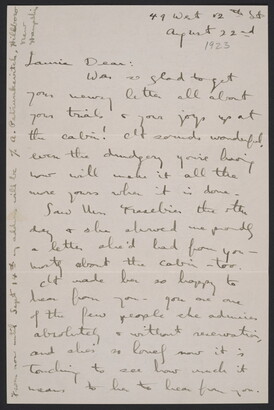 49 West 12th St
August 22nd
1923
Laurie Dear:
Was so glad to get
your newsy letter all about
your trials & your joys up at
the cabin! It sounds wonderful,
even the drudgery you're having
now will make it all the
more yours when it is done.
Saw Mrs. the other
day & she showed me proudly
a letter she'd had from you —
mostly about the cabin too.
It made her so happy to
hear from you — you are one
of the few people she admires
absolutely & without reservation,
and she's so lonely now it is
touching to see how much it
means to her to hear from you.
From now until Sept 14th my address will be % A. Hillsboro
New
Hampshire